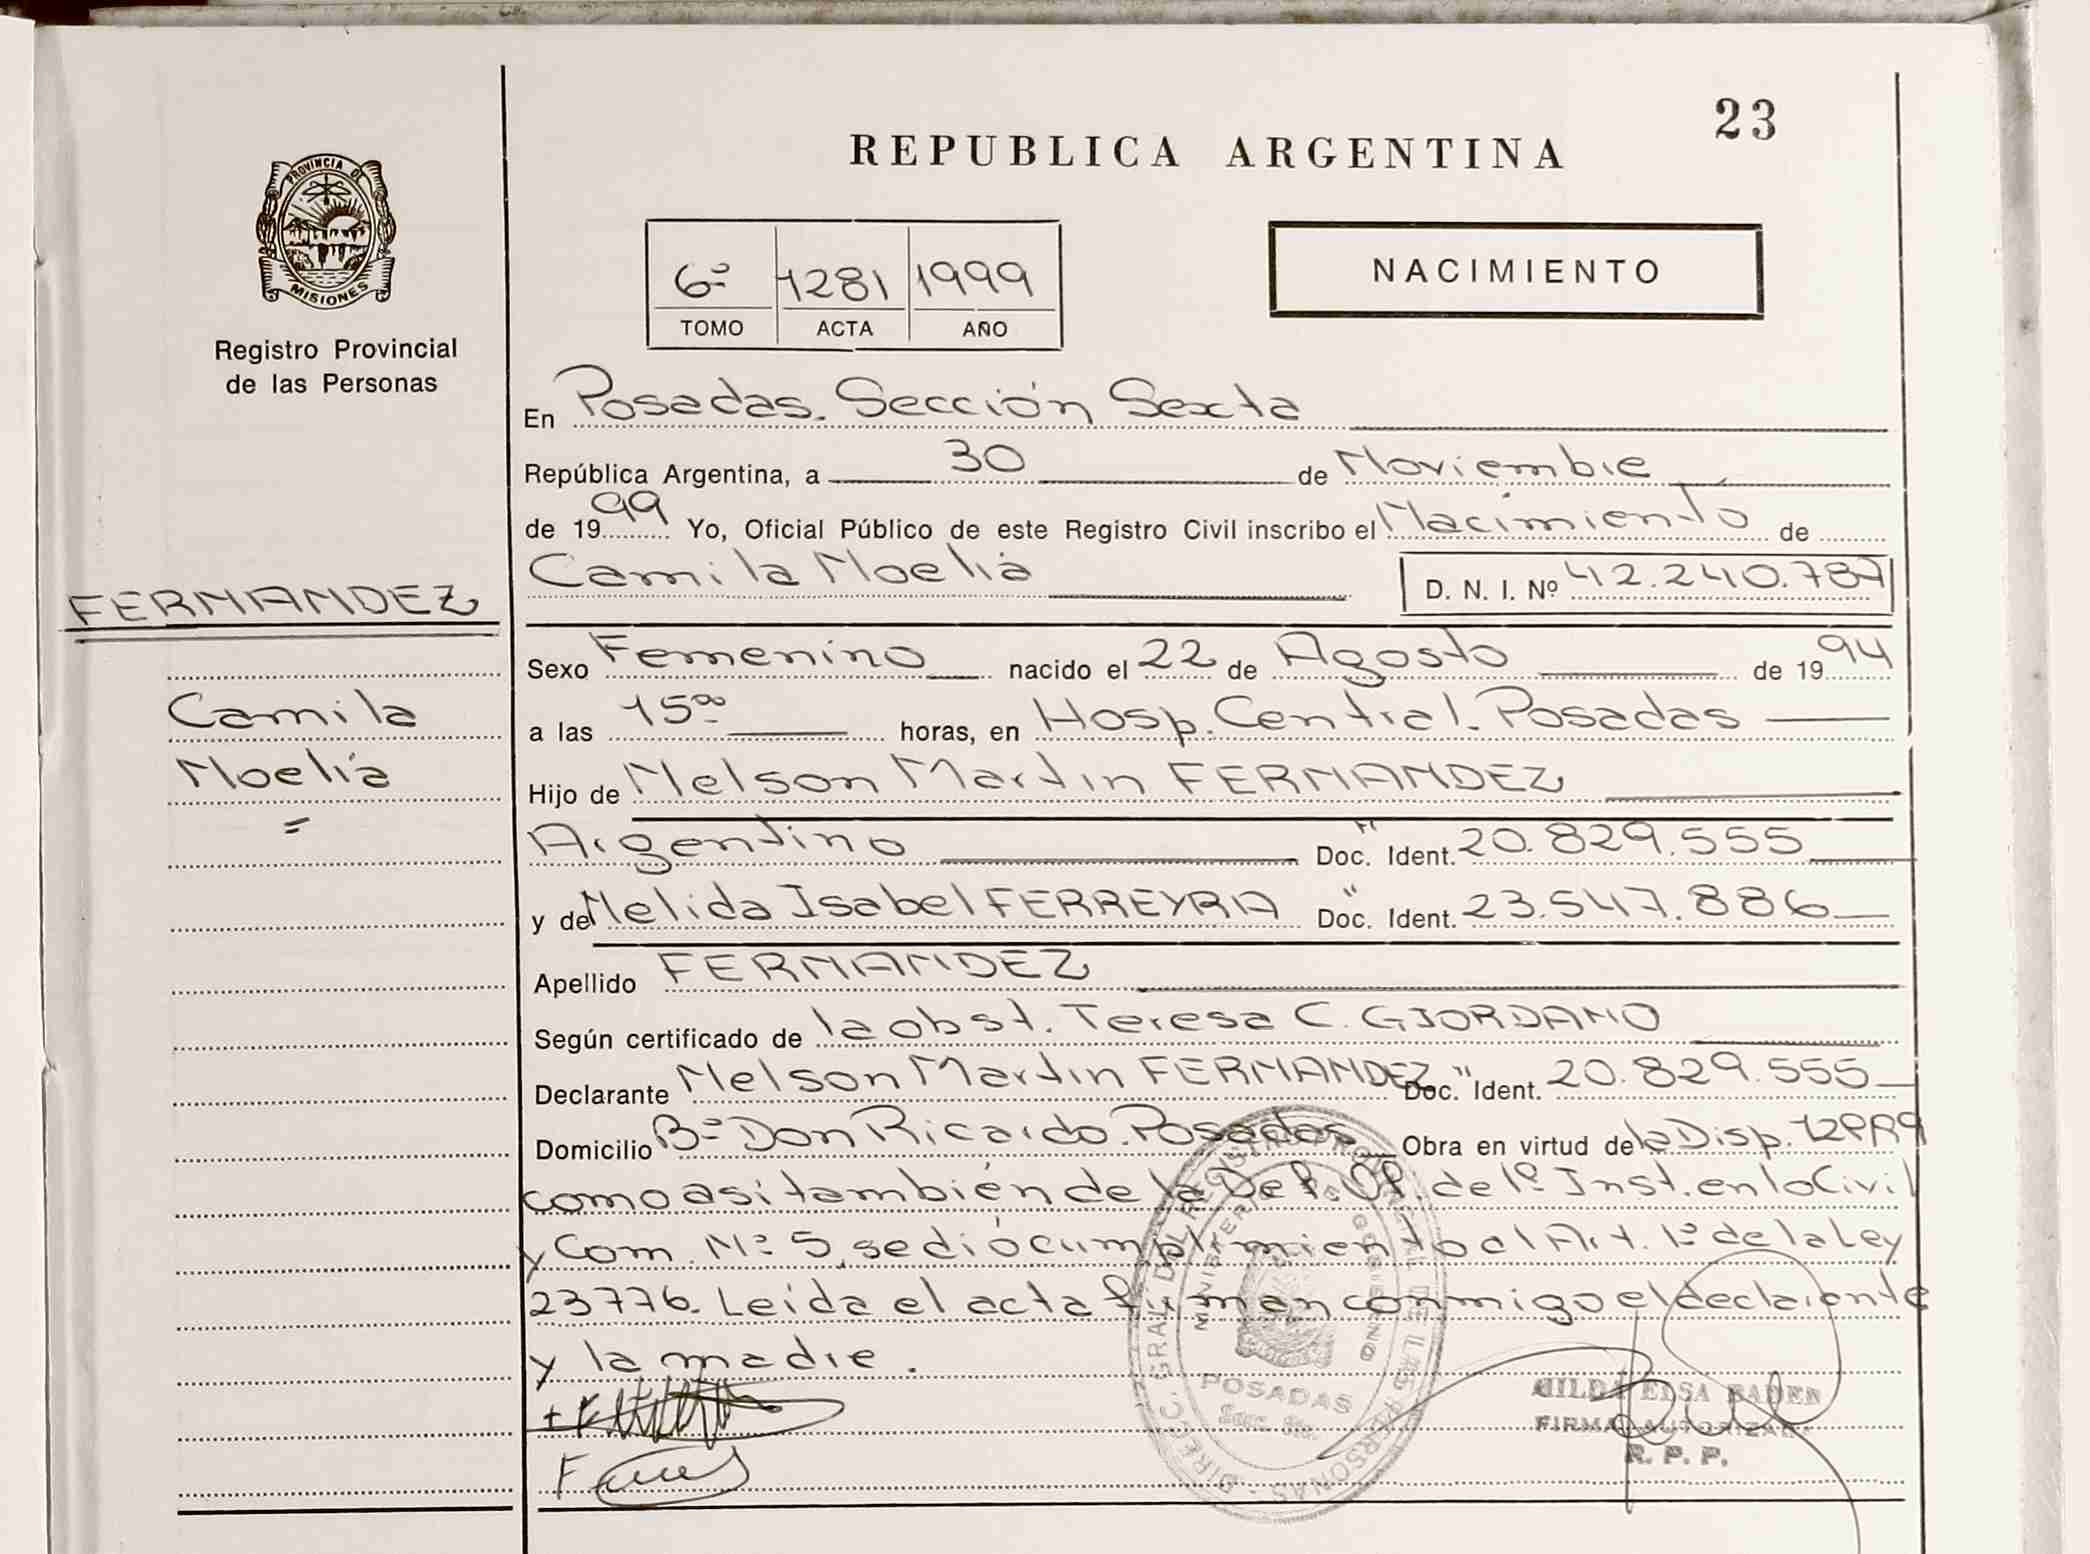 23
REPUBLICA ARGENTINA
PROVINCIA DE
MISIONES
Registro Provincial
de las Personas
6º 1281 1999
TOMO ACTA AÑO
NACIMIENTO
En Posadas. Sección Sexta
República Argentina, a 30 de Noviembre
de 1999 Yo, Oficial Público de este Registro Civil inscribo el Nacimiento de
Camila Noelia D. N. I. Nº 42.240.787
FERNANDEZ
Camila
Noelia
Sexo Femenino nacido el 22 de Agosto de 1994
a las 15ºº horas, en Hosp. Central. Posadas
Hijo de Nelson Martin FERNANDEZ
Argentino Doc. Ident. 20.829.555
y de Nelida Isabel FERREYRA Doc. Ident. 23.547.886
Apellido FERNANDEZ
Según certificado de la obst. Teresa C. GIORDANO
Declarante Nelson Martin FERNANDEZ Doc. Ident. 20.829.555
Domicilio Bº Don Ricardo. Posadas Obra en virtud de la Disp.
como asi también de la Def. Of. de 1º Inst. en lo Civil
y Com. Nº 5, se dió cumplimiento al Art. 1º de la Ley
23776. Leida el acta firman conmigo el declarante
y la madre.
DIREC. GRAL. DEL REGISTRO PROVINCIAL DE LAS PERSONAS
MINISTERIO DE GOBIERNO
POSADAS
Secc. 6ta.
HILDA ELSA BADER
FIRMA AUTORIZADA
R. P. P.